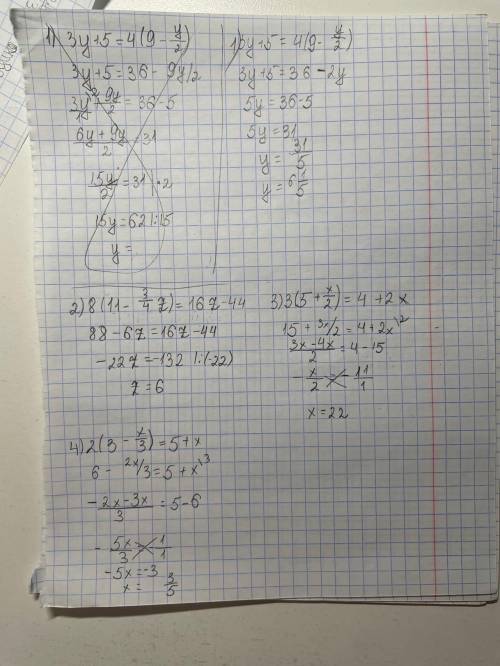 1) 3y+5=4(9-y/2)
3y+5=36-9y/2
3y/1\2+9y/2=36-5
6y+9y/2=31
15y/2=31 |·2
15y=62|:15
y=
1) 3y+5=4(9-y/2)
3y+5=36-2y
5y=36-5
5y=31
y=31/5
y=6 1/5
2) 8(11-3/4 z)=16z-44
88-6z=16z-44
-22z=-132 |:(-22)
z=6
3) 3(5+x/2)=4+2x
15+3x/2=4+2x\2
3x-4x/2=4-15
-x/2=-11/1
x=22
4) 2(3-x/3)=5+x
6-2x/3=5+x\3
-2x-3x/3=5-6
-5x/3 1/1
-5x=-3
x=3/5